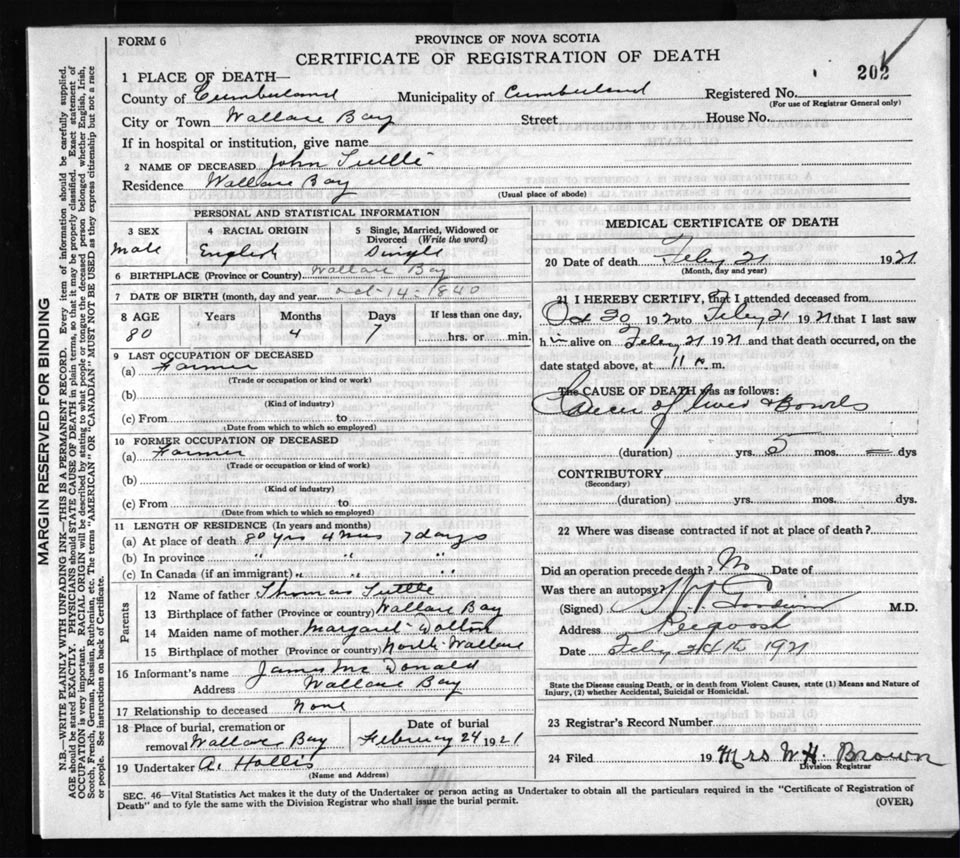 FORM 6
PROVINCE OF NOVA SCOTIA
CERTIFICATE OF REGISTRATION OF DEATH
202
1 PLACE OF DEATH—
County of Cumberland Municipality of Cumberland Registered No.
(For use of Registrar General only)
City or Town Wallace Bay Street House No.
If in hospital or institution, give name
2 NAME OF DECEASED John Tuttle
Residence Wallace Bay
(Usual place of abode)
PERSONAL AND STATISTICAL INFORMATION
3 SEX 4 RACIAL ORIGIN 5 Single, Married, Widowed or Divorced (Write the word)
Male English Single
6 BIRTHPLACE (Province or Country) Wallace Bay
7 DATE OF BIRTH (month, day and year) Oct 14 - 1840
8 AGE Years Months Days If less than one day,
80 4 7 hrs. or min.
9 LAST OCCUPATION OF DECEASED
(a) Farmer
(Trade or occupation or kind or work)
(b)
(Kind of industry)
(c) From to
(Date from which to which so employed)
10 FORMER OCCUPATION OF DECEASED
(a) Farmer
(Trade or occupation or kind of work)
(b)
(Kind of industry)
(c) From to
(Date from which to which so employed)
11 LENGTH OF RESIDENCE (In years and months)
(a) At place of death 80 yrs 4 mos 7 days
(b) In province " " "
(c) In Canada (if an immigrant) " " "
Parents
12 Name of father Thomas Tuttle
13 Birthplace of father (Province or country) Wallace Bay
14 Maiden name of mother Margaret Dotton
15 Birthplace of mother (Province or country) North Wallace
16 Informant's name James Mc Donald
Address Wallace Bay
17 Relationship to deceased None
18 Place of burial, cremation or removal Wallace Bay
Date of burial
February 24 1921
19 Undertaker A. Hollis
(Name and Address)
MEDICAL CERTIFICATE OF DEATH
20 Date of death Feby 21 1921
(Month, day and year)
21 I HEREBY CERTIFY, that I attended deceased from
Oct 30 1920 to Feby 21 1921 that I last saw
h im alive on Feby 21 1921 and that death occurred, on the
date stated above, at 11 m.
The CAUSE OF DEATH was as follows:
Cancer of liver & Bowels
(duration) yrs. 5 mos. = dys
CONTRIBUTORY
(Secondary)
(duration) yrs. mos. dys.
22 Where was disease contracted if not at place of death?
Did an operation precede death? No Date of
Was there an autopsy?
(Signed) M.D.
Address Pugwash
Date Feby 24th 1921
State the Disease causing Death, or in death from Violent Causes, state (1) Means and Nature of
Injury, (2) whether Accidental, Suicidal or Homicidal.
23 Registrar's Record Number
24 Filed 19 Mrs W H. Brown
Division Registrar
SEC. 46—Vital Statistics Act makes it the duty of the Undertaker or person acting as Undertaker to obtain all the particulars required in the "Certificate of Registration of
Death" and to fyle the same with the Division Registrar who shall issue the burial permit.
(OVER)
MARGIN RESERVED FOR BINDING
N.B.—WRITE PLAINLY WITH UNFADING INK—THIS IS A PERMANENT RECORD. Every item of information should be carefully supplied.
AGE should be stated EXACTLY. PHYSICIANS should STATE CAUSE OF DEATH in plain terms, so that it may be properly classified. Exact statement of
OCCUPATION is very important. RACIAL ORIGIN will be described by stating to what people or tongue the deceased person belonged whether English, Irish,
Scotch, French, German, Russian, Ruthenian, etc. The terms "AMERICAN" OR "CANADIAN" MUST NOT BE USED as they express citizenship but not a race
or people. See instructions on back of Certificate.